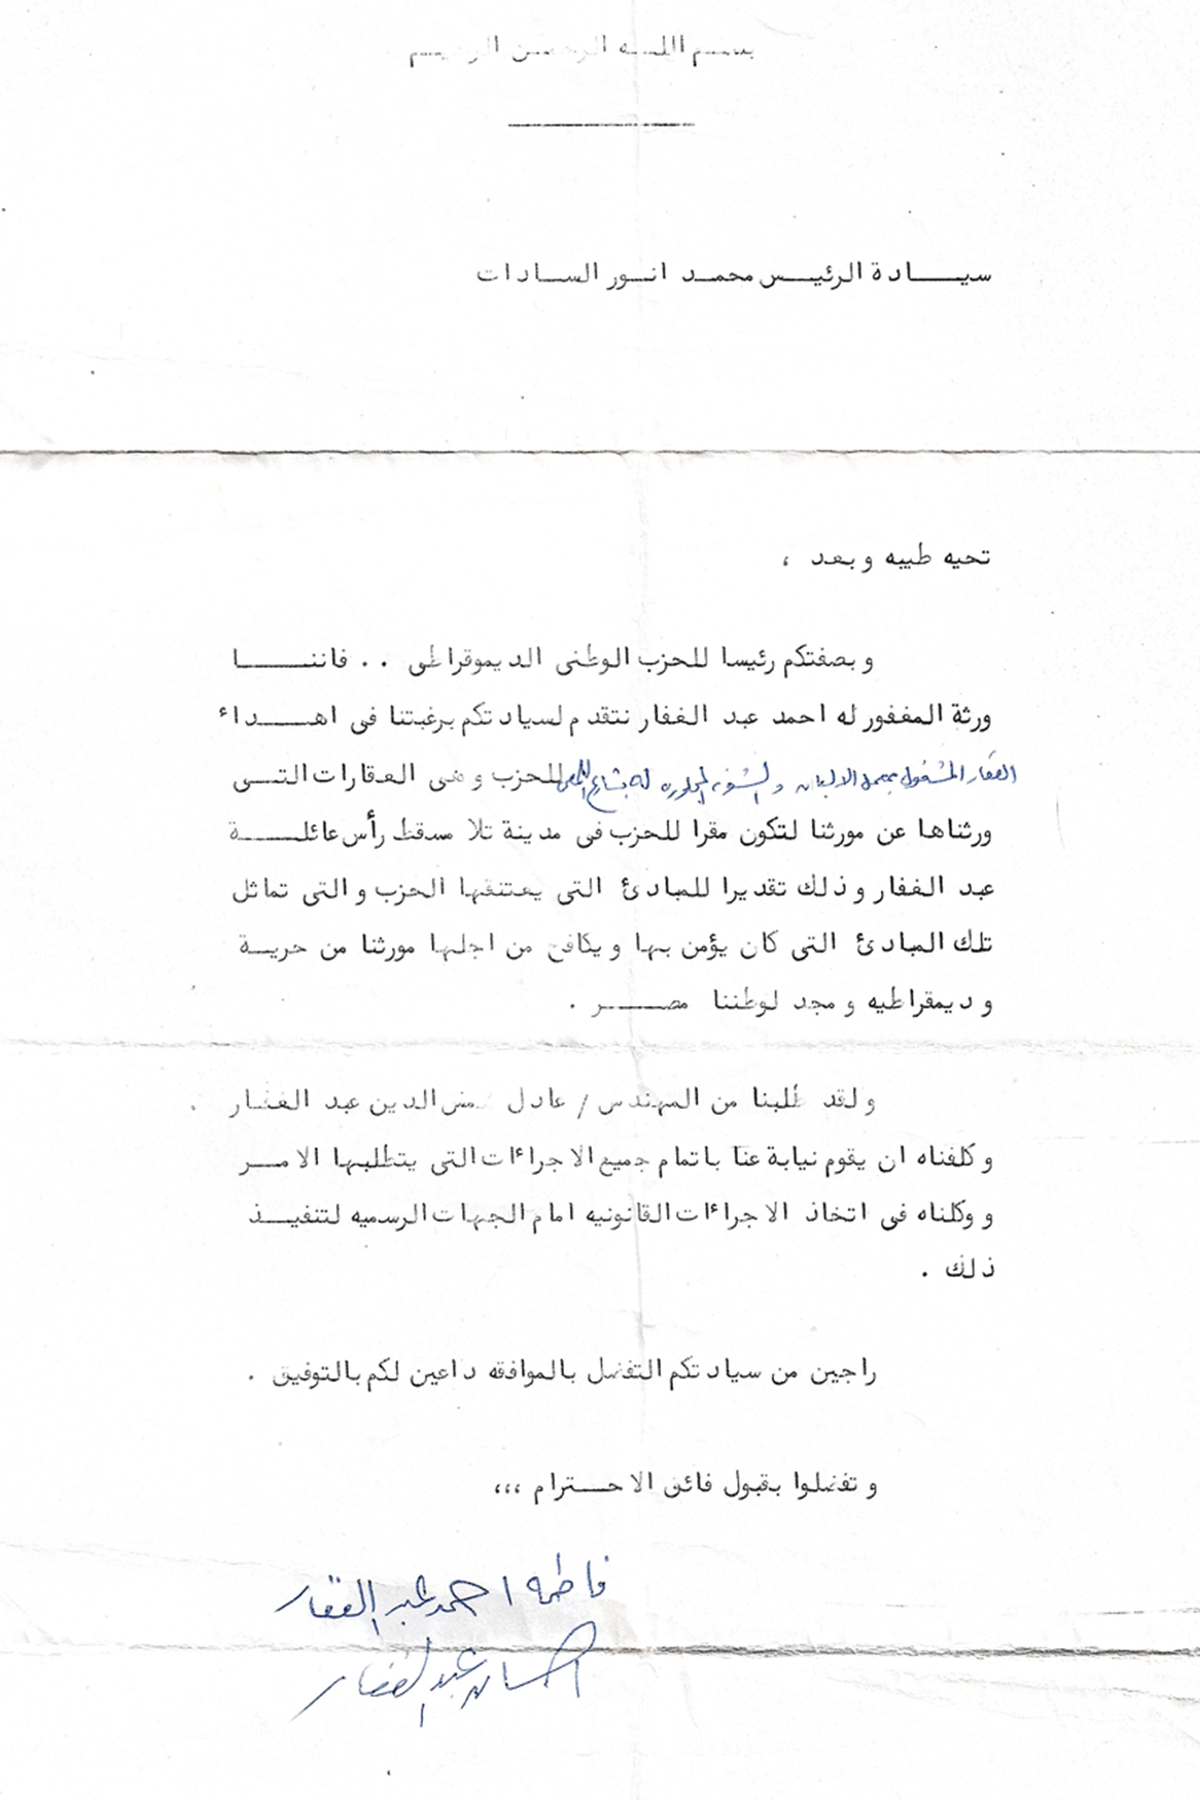 بسم الله الرحمن الرحيم
سيادة الرئيس محمد انور السادات
تحيه طيبه وبعد ،
وبصفتكم رئيسا للحزب الوطنى الديموقراطى .. فاننا
ورثة المغفور له احمد عبد الغفار نتقدم لسيادتكم برغبتنا فى اهداء
العقار المشغول بمعمل الالبان والشونه المجاوره له بشارع للحزب وهى العقارات التى
ورثناها عن مورثنا لتكون مقرا للحزب فى مدينة تلا مسقط رأس عائلة
عبد الغفار وذلك تقديرا للمبادئ التى يعتنقها الحزب والتى تماثل
تلك المبادئ التى كان يؤمن بها ويكافح من اجلها مورثنا من حرية
وديمقراطيه ومجد لوطننا مصر .
ولقد طلبنا من المهندس / عادل شمس الدين عبد الغفار .
وكلفناه ان يقوم نيابة عنا باتمام جميع الاجراءات التى يتطلبها الامر
ووكلناه فى اتخاذ الاجراءات القانونيه امام الجهات الرسميه لتنفيذ
ذلك .
راجين من سيادتكم التفضل بالموافقه داعين لكم بالتوفيق .
وتفضلوا بقبول فائق الاحترام ،،،
فاطمه احمد عبد الغفار
احسان عبد الغفار